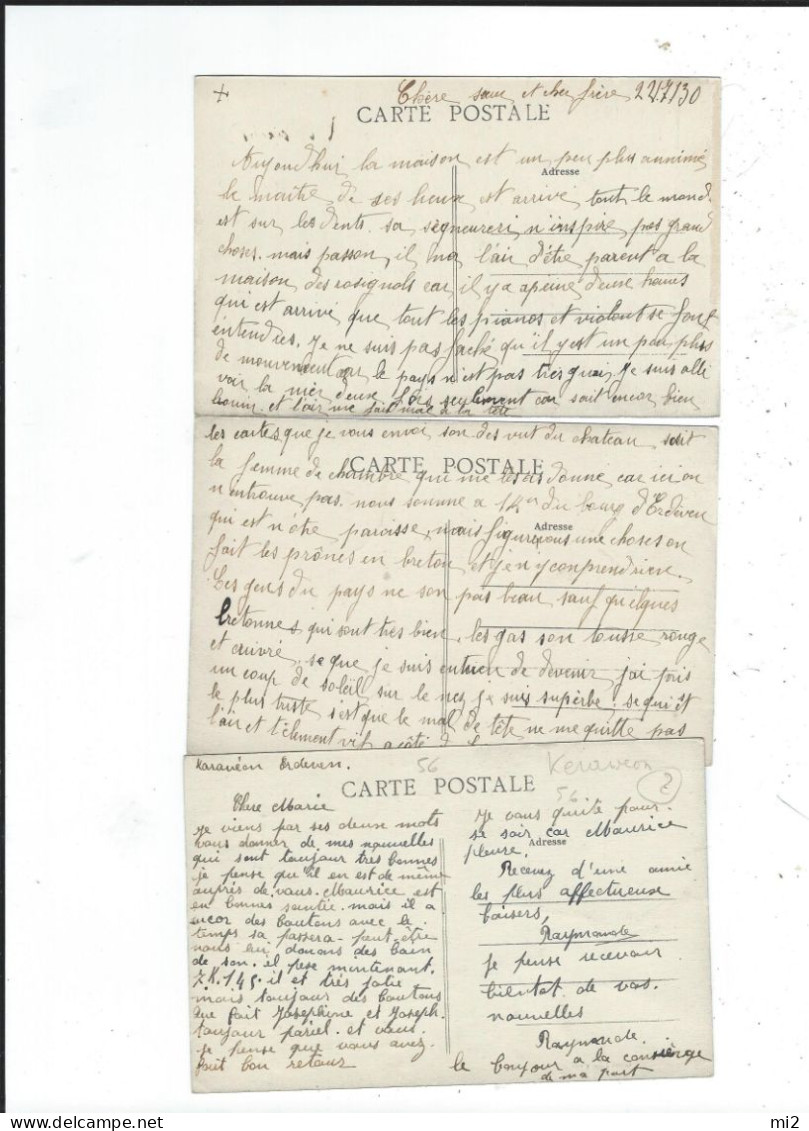 +
Chère sœur et cher frère 22/7/30
CARTE POSTALE
Aujourdhui la maison est un peu plus annimé
Adresse
le maitre de ses lieux est arrivé tout le mond
est sur les dents. sa seigneureri n'inspire pas grand
choses. mais passon, il m'a l'air d'être parent a la
maison des rosignols car il y a apeine d'eune heures
qui est arrivé que tout les pianos et violont se font
entendres. je ne suis pas faché qu'il y est un peu plus
de mouvement car le pays n'est pas très guai, je suis allé
voir la mèr d'eune fois seulment car sait encor bien
et l'air me fait mal a la tête
les cartes que je vous envoi son des vut du chateau sait
la femme de chambre qui me les as donné car ici on
CARTE POSTALE
n'entrouve pas. nous somme a 1 Km du bourg d'Erdeven
Adresse
qui est n'otre paroisse, mais figurevous une choses on
fait les prônes en breton et j'en y conprend rien.
Les gens du pays ne son pas beau sauf quelques
bretonnes qui sont très bien, les gas son tousse rouge
et cuivré, se que je suis entrien de devenir j'ai pris
un coup de soleil sur le nes, je suis supèrbe! se qui est
le plus triste s'est que le mal de tête ne me quitte pas
l'air et vif a côté de
Karavéon Erdeven.
56
Keraveon
56
2
CARTE POSTALE
Chere Marie
je viens par ses deux mots
vous donner de mes nouvelles
qui sont toujour très bonnes
je pense qu'il en est de même
auprès de vous. Maurice est
en bonnes santée. mais il a
encor des boutons avec le
temps sa passera - peut être
nous lui donons des bain
de son. il pese maintenant.
7.K.145. il et très jolie
mais toujour des boutons
que fait Josephine et Joseph.
toujour pariel. et vous.
je pense que vous avez
fait bon retour
Je vous quite pour
se soir car Maurice
pleure.
Adresse
Recevez d'une amie
les plus affectueux
baisers,
Raymonde
je pense recevoir
bientot de vos
nouvelles
Raymonde.
le bonjour a la consièrge
de ma part
mi2